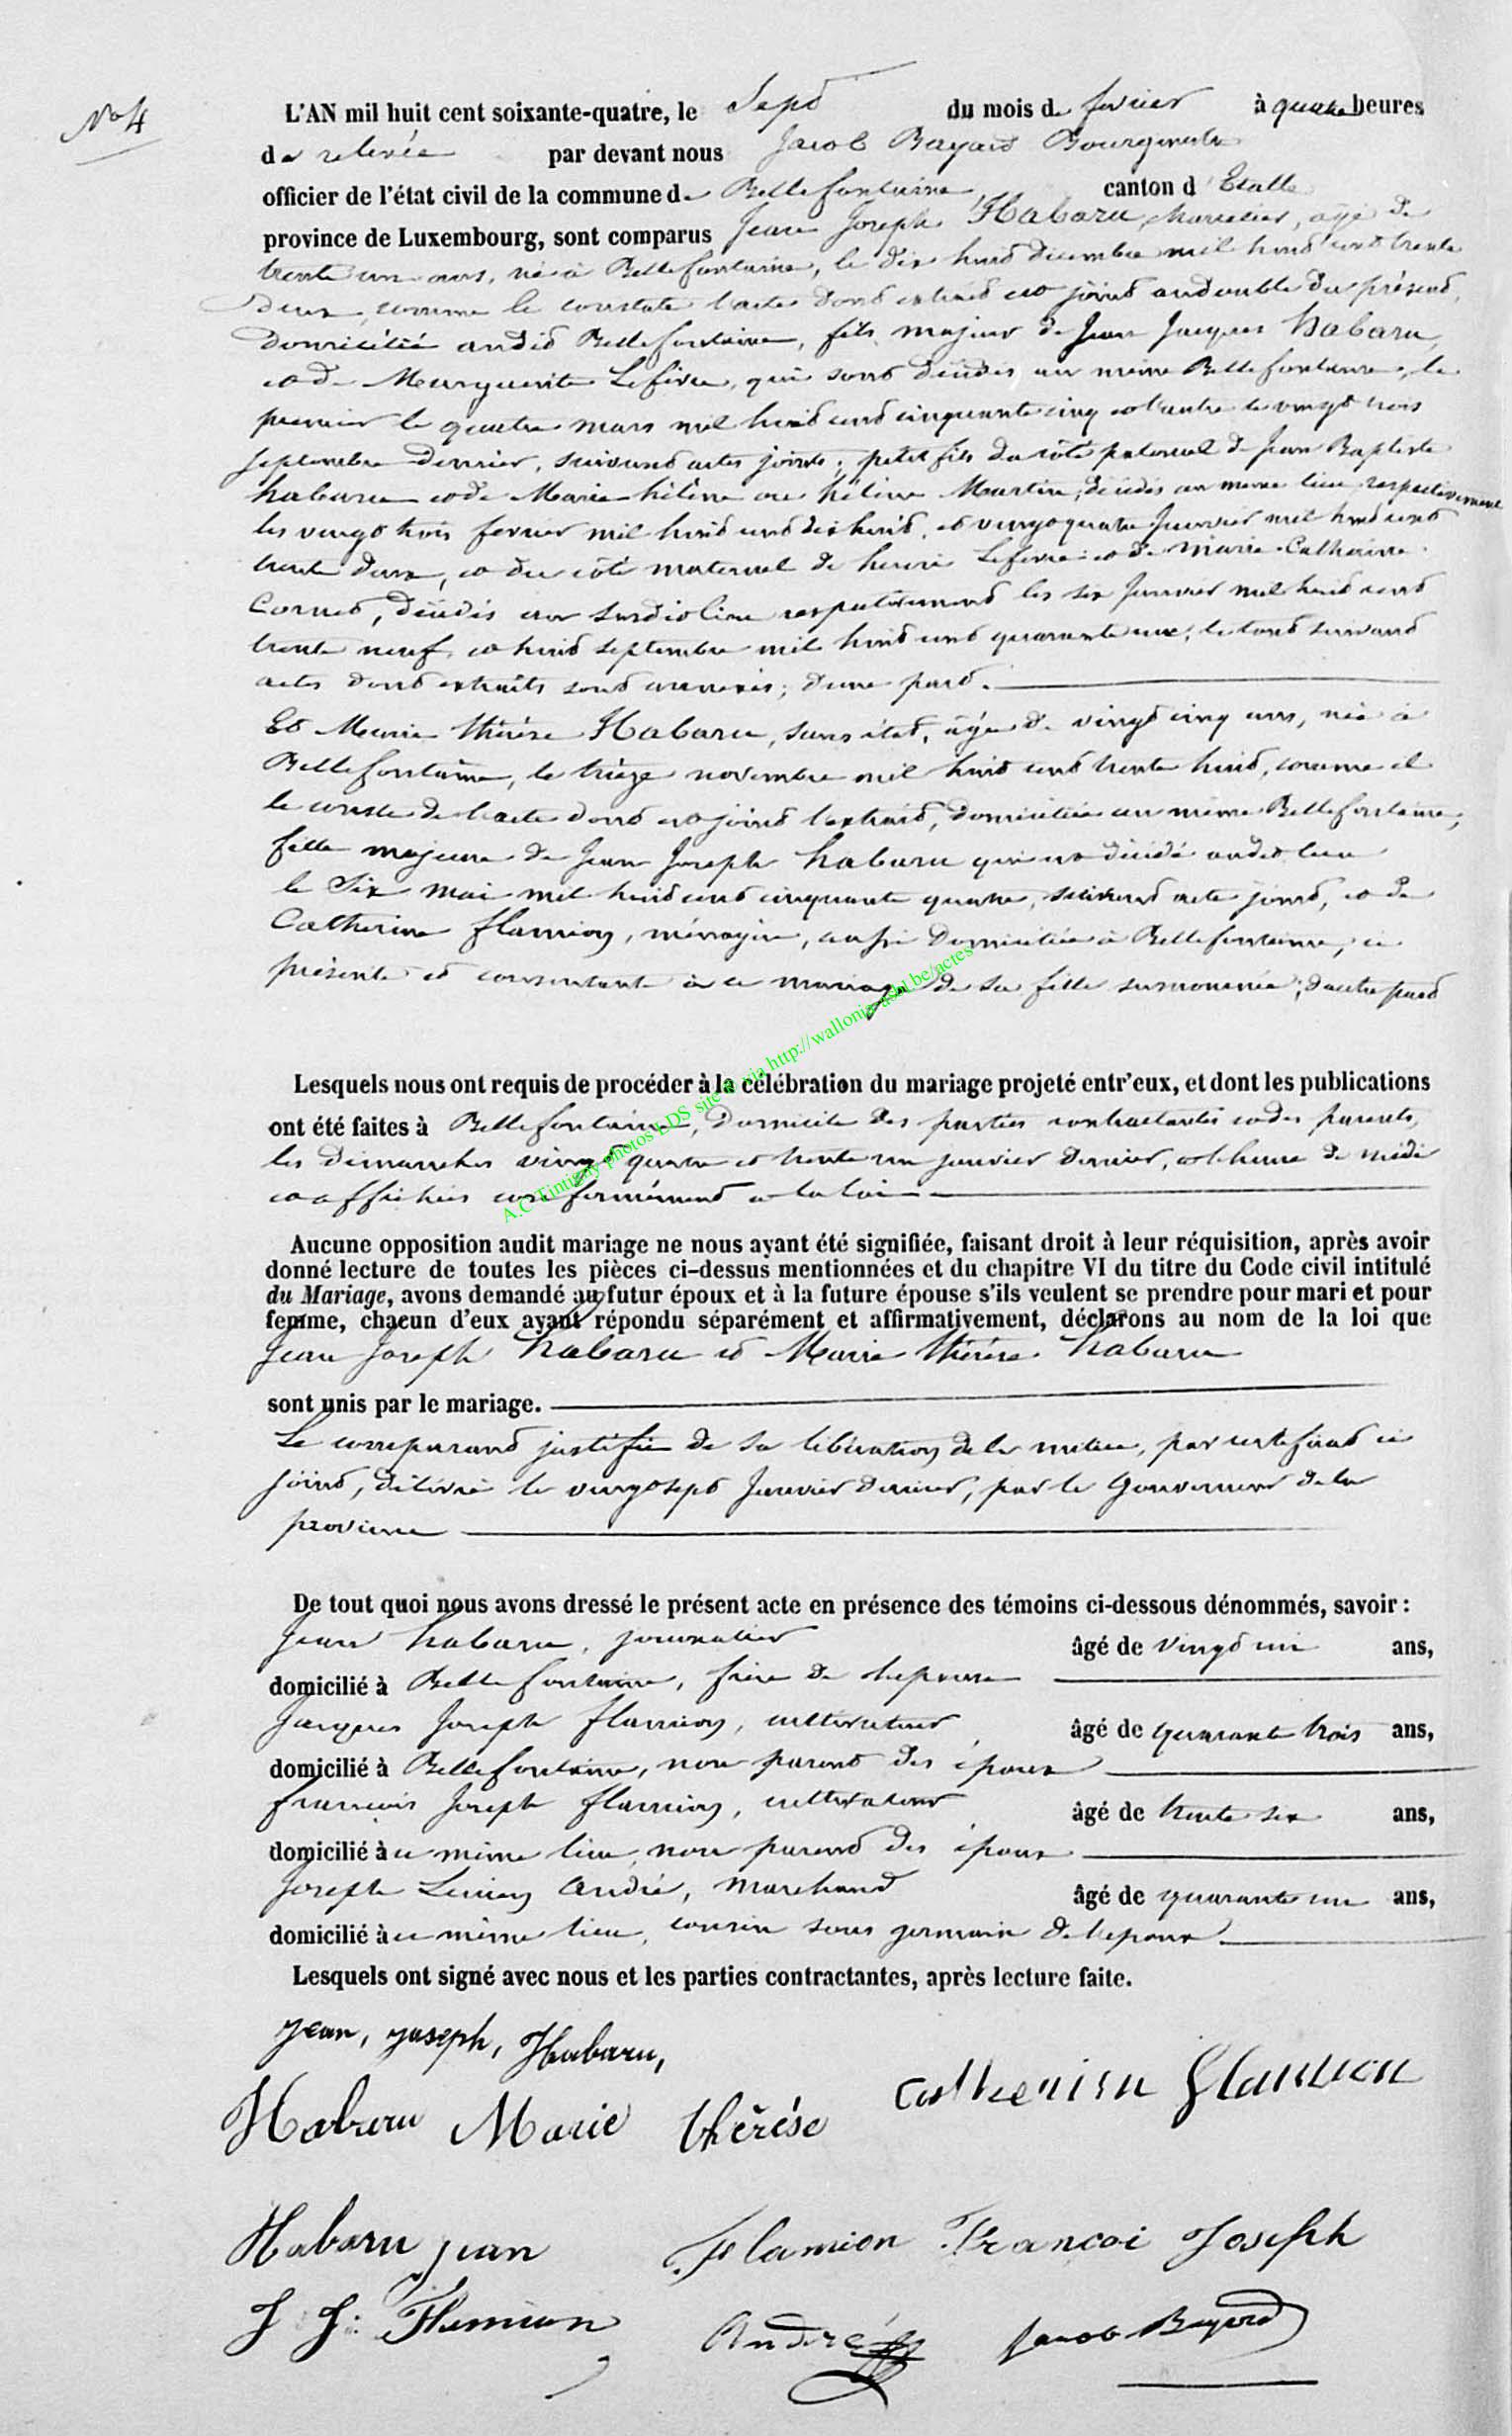 No 4
L'AN mil huit cent soixante-quatre, le Sept du mois de fevrier à quatre heures
de relevée par devant nous Jacob Bayard Bourgmestre
officier de l'état civil de la commune de Bellefontaine, canton d'Etalle
province de Luxembourg, sont comparus Jean Joseph Habaru, âgé de
trente un ans, né à Bellefontaine, le dix huit décembre mil huit cent trente
deux, comme le constate l'acte dont extrait est joint au double du présent,
domicilié audit Bellefontaine, fils majeur de Jean Jacques habaru,
et de Marguerite Lefèvre, qui sont décédés au même Bellefontaine, le
premier le quatre mars mil huit cent cinquante cinq et l'autre le vingt trois
septembre dernier, suivant actes joints; petit fils du côté paternel de Jean Baptiste
habaru et de Marie hélène ou hélène Martin, décédés au même lieu respectivement
les vingt trois fevrier mil huit cent dix huit, et vingt quatre Janvier mil huit cent
trente deux, et du côté maternel de henri Lefevre et de Marie Catherine
Cornet, décédés au susdit lieu respectivement les six Janvier mil huit cent
trente neuf et huit septembre mil huit cent quarante un, le tout suivant
actes dont extraits sont annexés; d'une part.
Et Marie thérèse Habaru, sans état, âgée de vingt cinq ans, née à
Bellefontaine, le treize novembre mil huit cent trente huit, comme il
le conste de l'acte dont est joint l'extrait, domiciliée au même Bellefontaine,
fille majeure de Jean Joseph habaru qui est décédé audit lieu
le six mai mil huit cent cinquante quatre, suivant acte joint, et de
Catherine flamion, ménagère, aussi domiciliée à Bellefontaine, ci
présente et consentante à ce mariage de sa fille surnommée; d'autre part
Lesquels nous ont requis de procéder à la célébration du mariage projeté entr'eux, et dont les publications
ont été faites à Bellefontaine, domicile des parties contractantes et des parents,
les dimanches vingt quatre et trente un janvier dernier, à l'heure de midi
et affichées conformément à la loi
Aucune opposition audit mariage ne nous ayant été signifiée, faisant droit à leur réquisition, après avoir
donné lecture de toutes les pièces ci-dessus mentionnées et du chapitre VI du titre du Code civil intitulé
du Mariage, avons demandé au futur époux et à la future épouse s'ils veulent se prendre pour mari et pour
femme, chacun d'eux ayant répondu séparément et affirmativement, déclarons au nom de la loi que
Jean Joseph habaru et Marie thérèse habaru
sont unis par le mariage.
Le comparant justifie de sa libération de la milice, par certificat ci
joint, délivré le vingt sept Janvier dernier, par le Gouverneur de la
province
De tout quoi nous avons dressé le présent acte en présence des témoins ci-dessous dénommés, savoir :
Jean habaru, journalier âgé de vingt un ans,
domicilié à Bellefontaine, frère de l'épouse
Jacques Joseph flamion, cultivateur âgé de quarante trois ans,
domicilié à Bellefontaine, non parent des époux
francois Joseph flamion, cultivateur âgé de trente six ans,
domicilié à ce même lieu, non parent des époux
Joseph Lucien André, marchand âgé de quarante un ans,
domicilié à ce même lieu, cousin sous germain de l'époux
Lesquels ont signé avec nous et les parties contractantes, après lecture faite.
jean, joseph, Habaru,
Habaru Marie thérése catherien flamion
Habaru jean Flamion Francoi Joseph
J J: Flamion André Jacob Bayard
A.C Tintigny photos LDS site et via http://wallonia-asbl.be/actes